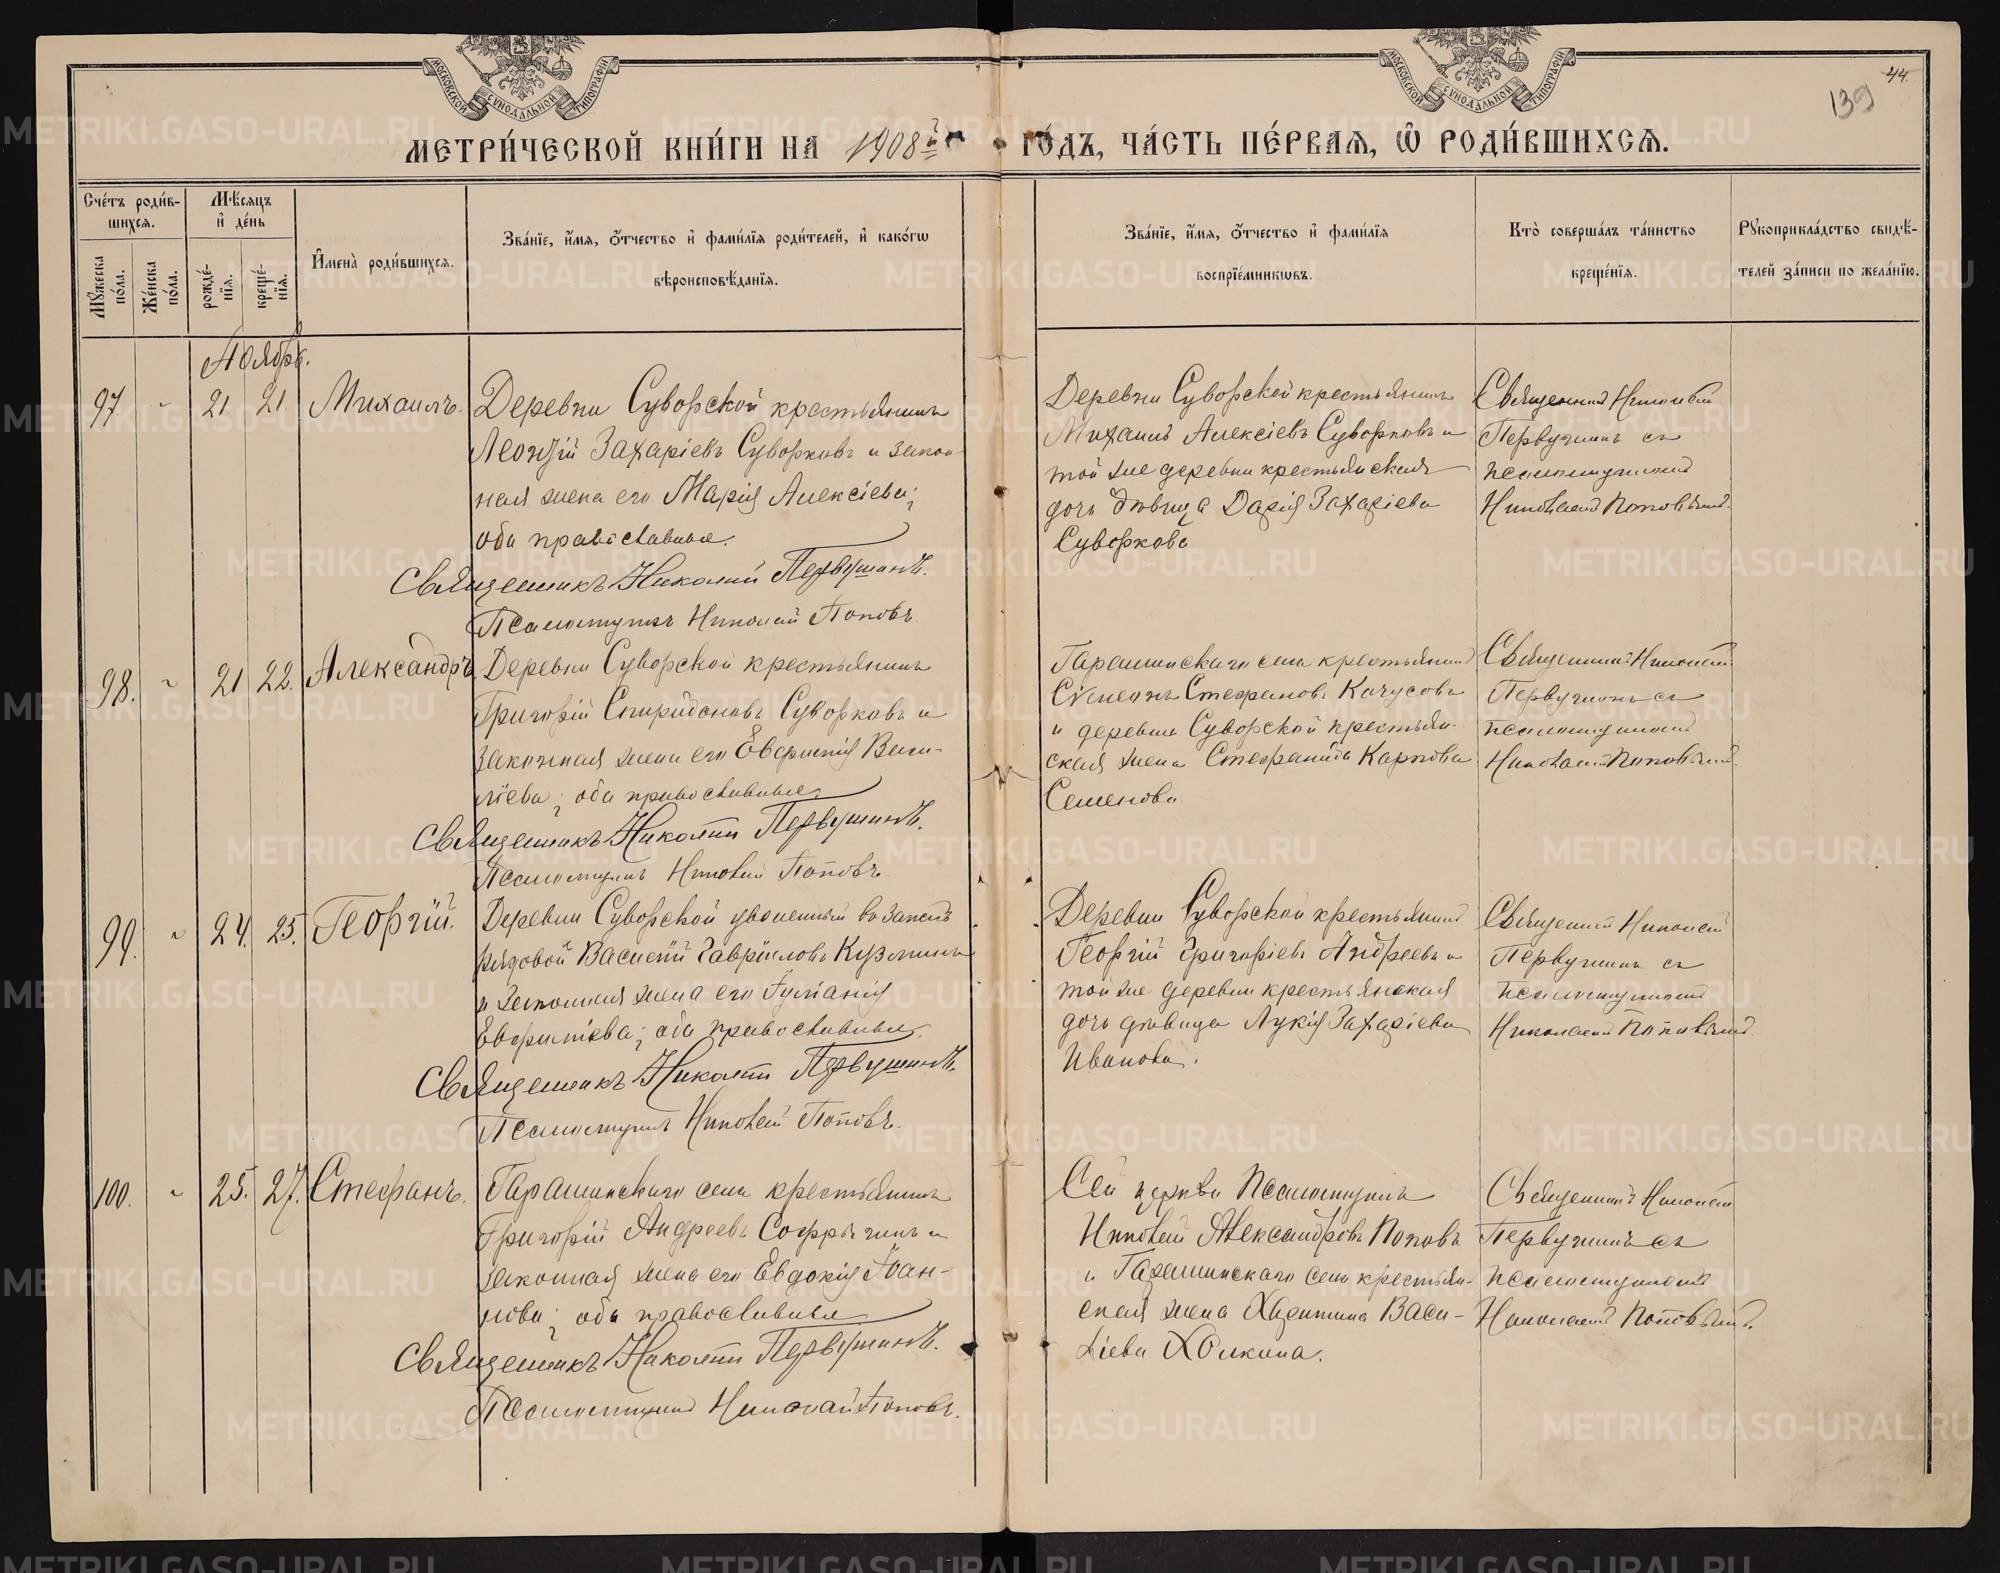 МОСКОВСКОЙ СѴНОДАЛЬНОЙ ТИПОГРАФІИ
МОСКОВСКОЙ СѴНОДАЛЬНОЙ ТИПОГРАФІИ
44.
139
МЕТРИ́ЧЕСКОЙ КНИ́ГИ НА 1908й ГО́ДЪ, ЧА́СТЬ ПЕ́РВАѦ, Ѿ РОДИ́ВШИХСѦ.
Сче́тъ роди́в-
шихсѧ.
Мꙋ́жеска по́ла.
Же́нска по́ла.
Мѣ́сѧцъ
и҆ де́нь
рожде́-
нїѧ.
креще́-
нїѧ.
И҆мена̀ роди́вшихсѧ.
Зва́нїе, и҆́мѧ, ѻ҆́тчество и҆ фами́лїѧ роди́телей, и҆ како́гѡ
вѣроисповѣ́данїѧ.
Зва́нїе, и҆́мѧ, ѻ҆́тчество и҆ фами́лїѧ
воспрїе́мникѡвъ.
Кто̀ соверша́лъ та́инство
креще́нїѧ.
Рꙋкоприкла́дство свидѣ́-
телей за́писи по жела́нїю.
Ноябрь.
97. - 21 21 Михаилъ.
Деревни Суворской крестьянинъ
Леонтій Захаріевъ Суворковъ и закон-
ная жена его Марія Алексіева;
оба православные.
Священникъ Николай Первушинъ.
Псаломщикъ Николай Поповъ
Деревни Суворской крестьянинъ
Михаилъ Алексіевъ Суворковъ и
той же деревни крестьянская
дочь дѣвица Дарія Захаріева
Суворкова
Священникъ Николай
Первушинъ съ
псаломщикомъ
Николаемъ Поповымъ.
98. - 21 22. Александръ
Деревни Суворской крестьянинъ
Григорій Спиридоновъ Суворковъ и
законная жена его Евфимія Васи-
ліева; оба православные.
Священникъ Николай Первушинъ.
Псаломщикъ Николай Поповъ.
Гарашинскаго села крестьянинъ
Сѵмеонъ Стефановъ Качусовъ
и деревни Суворской крестьян-
ская жена Стефанида Карпова
Семенова.
Священникъ Николай
Первушинъ съ
псаломщикомъ
Николаемъ Поповымъ.
99. - 24. 25. Георгій.
Деревни Суворской уволенный въ запасъ
рядовой Василій Гавріиловъ Кузминъ
и законная жена его Іуліанія
оба православные.
Священникъ Николай Первушинъ.
Псаломщикъ Николай Поповъ.
Деревни Суворской крестьянинъ
Георгій Григоріевъ Андреевъ и
той же деревни крестьянская
дочь дѣвица Лукія Захаріева
Иванова.
Священникъ Николай
Первушинъ съ
псаломщикомъ
Николаемъ Поповымъ.
100. - 25. 27. Стефанъ.
Гарашинскаго села крестьянинъ
Григорій Андреевъ и
законная жена его Евдокія Іоан-
нова; оба православные.
Священникъ Николай Первушинъ.
Псаломщикъ Николай Поповъ.
Сей церкви Псаломщикъ
Николай Александровъ Поповъ
и Гарашинскаго села крестьян-
ская жена Харитина Васи-
ліева Холкина.
Священникъ Николай
Первушинъ съ
псаломщикомъ
Николаемъ Поповымъ.
METRIKI.GASO-URAL.RU